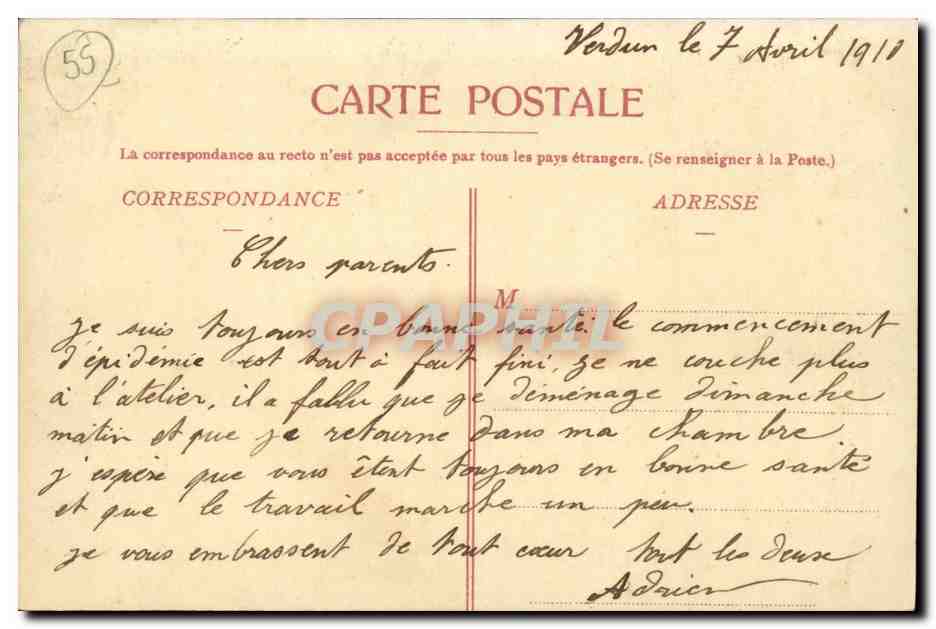 55
Verdun le 7 Avril 1910
CARTE POSTALE
La correspondance au recto n'est pas acceptée par tous les pays étrangers. (Se renseigner à la Poste.)
CORRESPONDANCE
ADRESSE
Chers parents.
M
CPAPHIL
je suis toujours en bonne santé. le commencement
d'épidémie est tout à fait fini, je ne couche plus
à l'atelier, il a fallu que je déménage dimanche
matin et que je retourne dans ma chambre
j'espère que vous êtent toujours en bonne santé
et que le travail marche un peu.
je vous embrassent de tout cœur tout les deux
Adrien